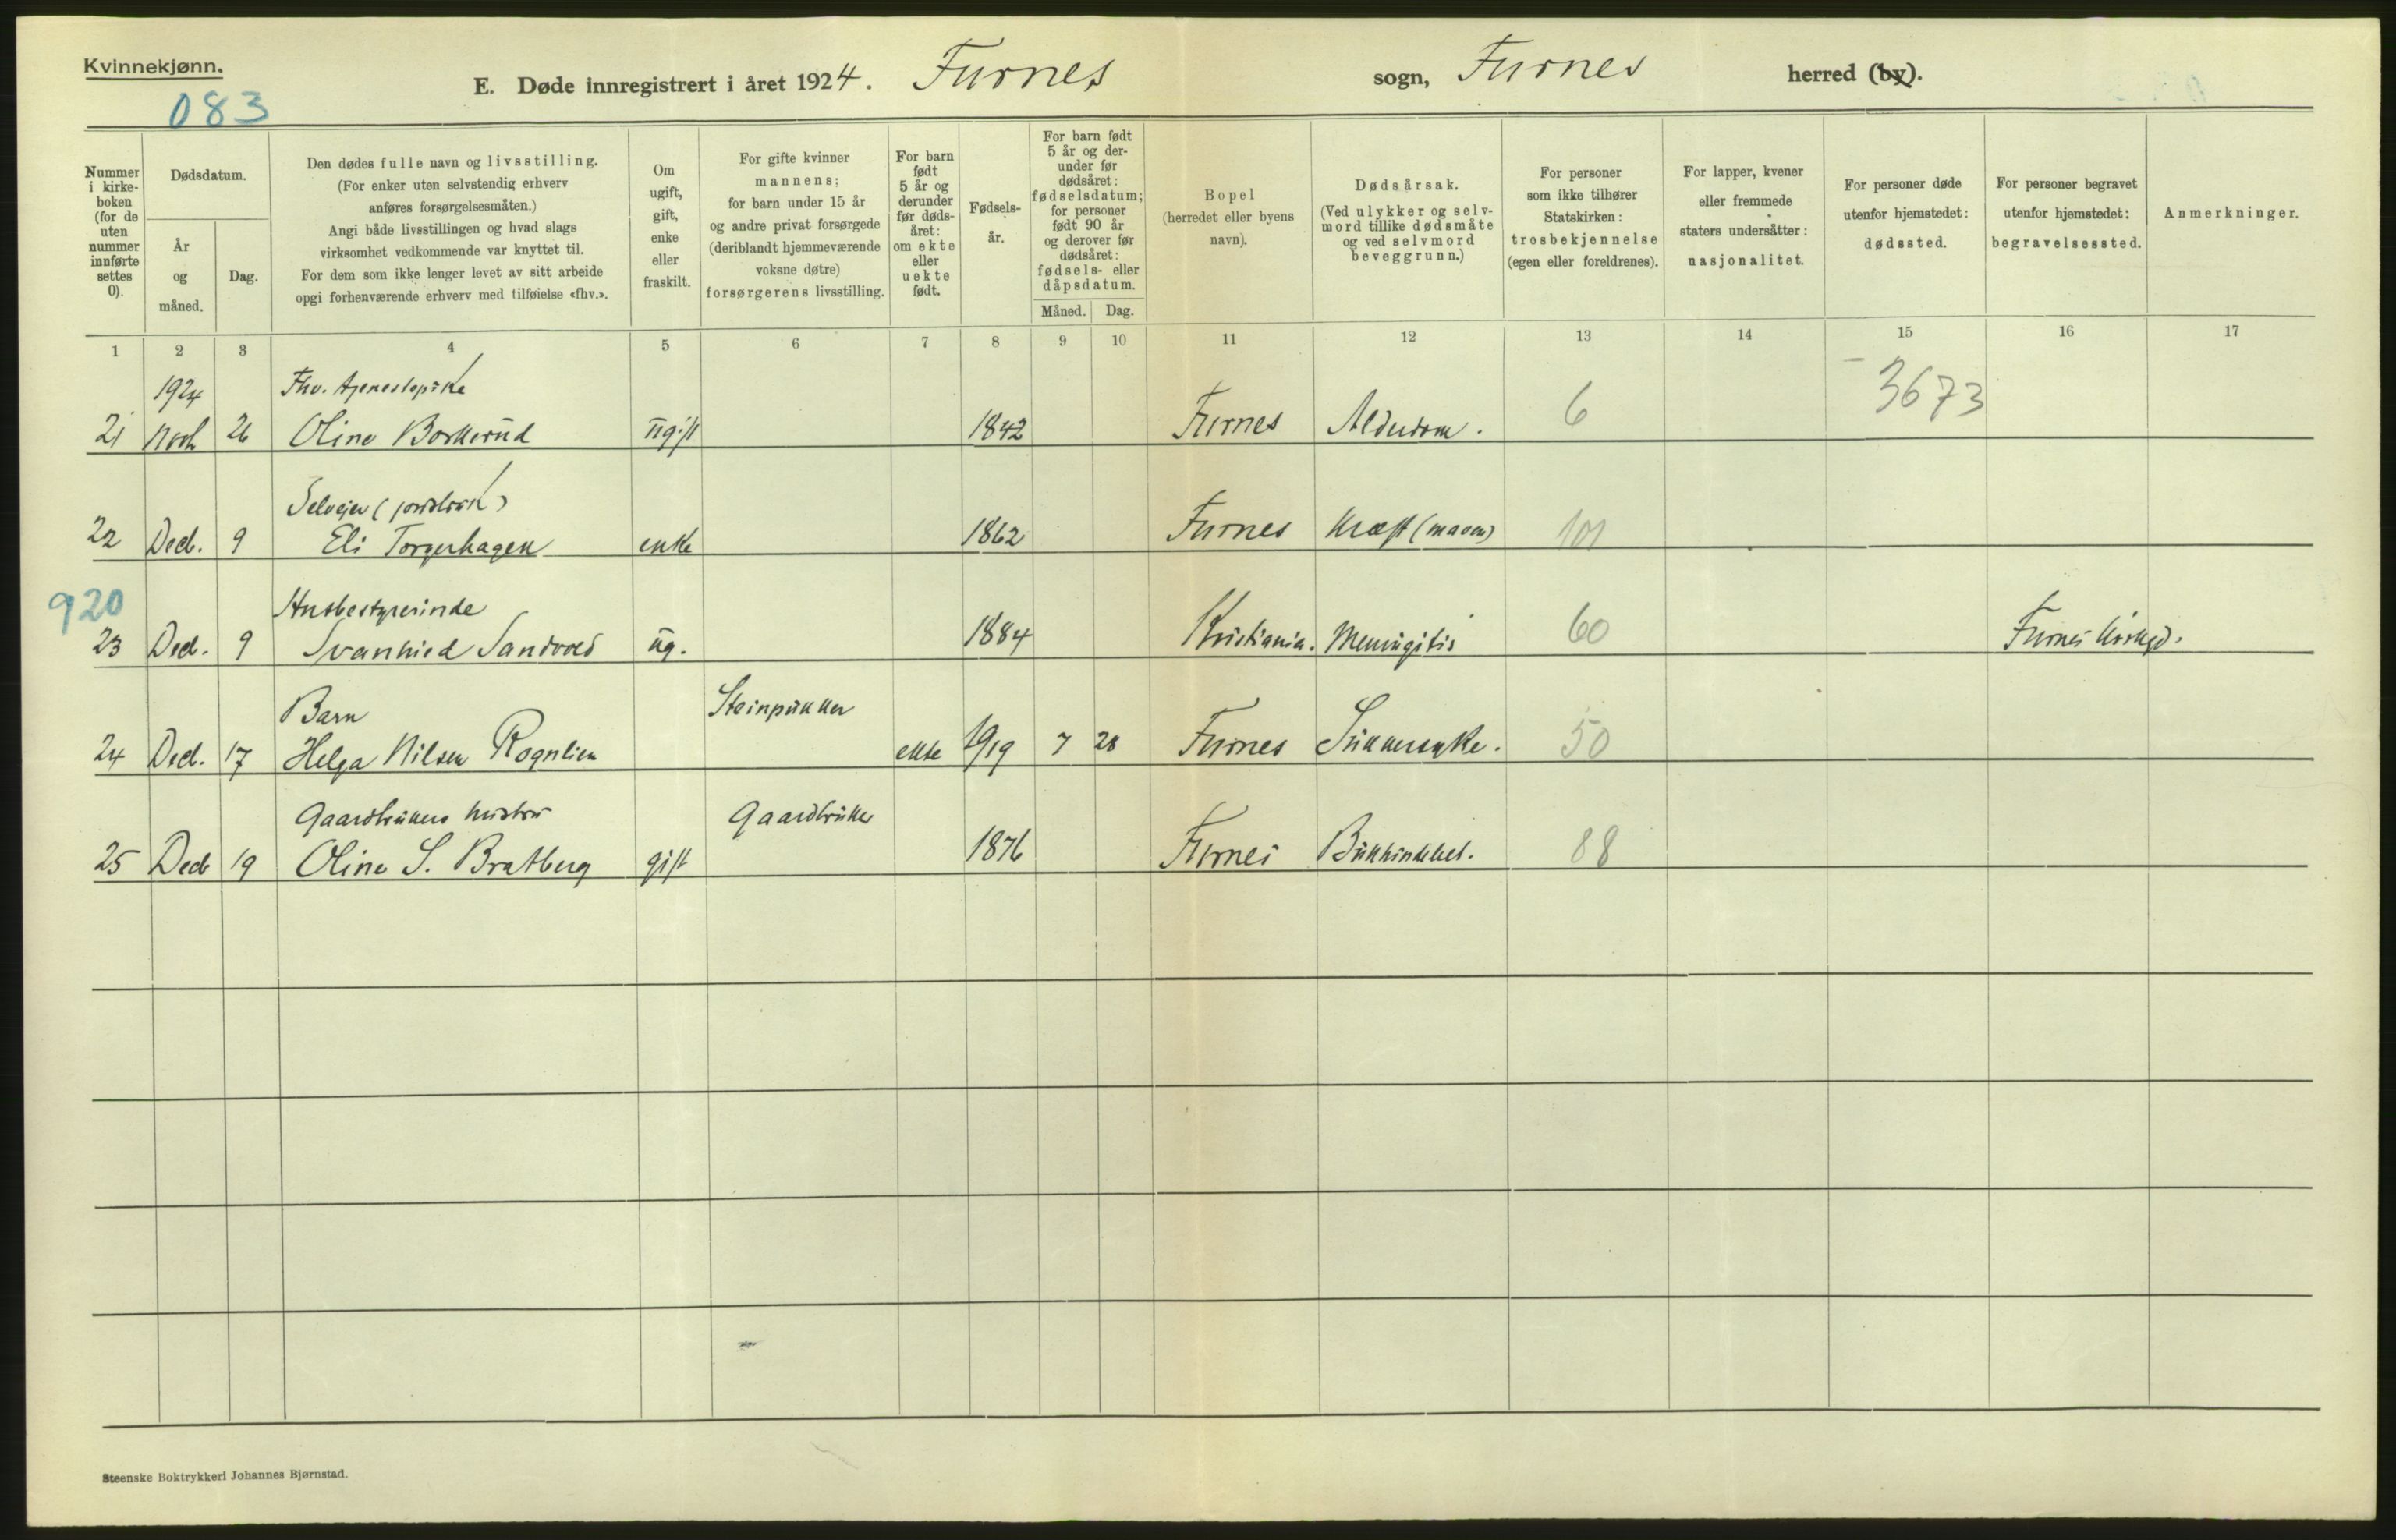 Kvinnekjønn.
083
E. Døde innregistrert i året 1924. Furnes sogn, Furnes herred (by).
Nummer
i kirke-
boken
(for de
uten
nummer
innførte
settes
0).
Dødsdatum.
År
og
måned.
Dag.
Den dødes fulle navn og livsstilling.
(For enker uten selvstendig erhverv
anføres forsørgelsesmåten.)
Angi både livsstillingen og hvad slags
virksomhet vedkommende var knyttet til.
For dem som ikke lenger levet av sitt arbeide
opgi forhenværende erhverv med tilføielse «fhv.».
Om
ugift,
gift,
enke
eller
fraskilt.
For gifte kvinner
mannens;
for barn under 15 år
og andre privat forsørgede
(deriblandt hjemmeværende
voksne døtre)
forsørgerens livsstilling.
For barn
født
5 år og
derunder
før døds-
året:
om ekte
eller
uekte
født.
Fødsels-
år.
For barn født
5 år og der-
under før
dødsåret:
fødselsdatum;
for personer
født 90 år
og derover før
dødsåret:
fødsels- eller
dåpsdatum.
Måned. Dag.
Bopel
(herredet eller byens
navn).
Dødsårsak.
(Ved ulykker og selv-
mord tillike dødsmåte
og ved selvmord
beveggrunn.)
For personer
som ikke tilhører
Statskirken:
trosbekjennelse
(egen eller foreldrenes).
For lapper, kvener
eller fremmede
staters undersåtter:
nasjonalitet.
For personer døde
utenfor hjemstedet:
dødssted.
For personer begravet
utenfor hjemstedet:
begravelsessted.
Anmerkninger.
1 2 3 4 5 6 7 8 9 10 11 12 13 14 15 16 17
1924 Fhv. tjenestepike 3673
21 Novb 26 Oline Borkerud ugift 1842 Furnes Alderdom. 6
Selveier (jordbruk)
22 Decb. 9 Eli Torgerhagen enke 1862 Furnes Kræft (maven) 101
920 Husbestyrerinde
23 Decb. 9 Svanhied Sandvold ug. 1884 Kristiania. Meningitis 60 Furnes kirkegd.
Barn Steinpukker
24 Decb. 17 Helga Nilsen Rognlien ekte 1919 7 28 Furnes Sukkersyke. 50
Gaardbrukers hustru Gaardbruker
25 Decb 19 Oline S. Bratberg gift 1876 Furnes 88
Steenske Boktrykkeri Johannes Bjørnstad.